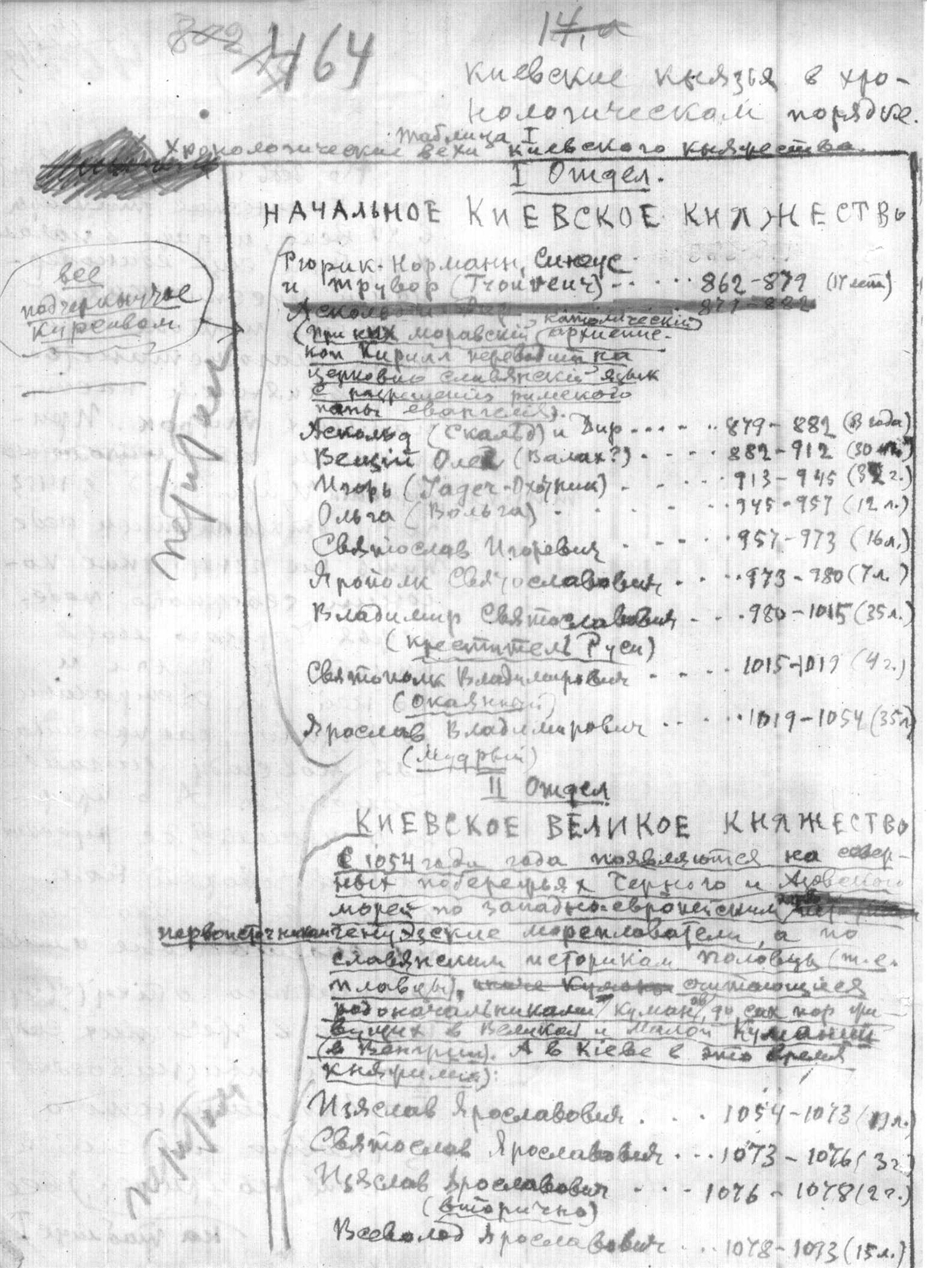 164
14,а
Киевские князья в хро-
нологическом порядке.
Таблица I
Хронологические вехи киевского княжества.
I Отдел.
НАЧАЛЬНОЕ КИЕВСКОЕ КНЯЖЕСТВО
Рюрик-Норманн, Синеус
и Трувор 862-879 (17 лет)
все
подчеркнутое
курсивом
877-882
католический
(при них моравский архиепис-
коп Кирилл переводит на
церковно славянский язык
с разрешения римского
папы евангелия).
Аскольд (Скальд) и Дир 879-882 (3 года)
Вещий Олег (Валах?) 882-912 (30 л.)
Игорь 913-945 (32 г.)
Ольга (Вольга) 945-957 (12 л.)
Святослав Игоревич 957-973 (16 л.)
Ярополк Святославович 973-980 (7 л.)
Владимир Святославович 980-1015 (35 л.)
(креститель Руси)
Святополк Владимирович 1015-1019 (4 г.)
(окаянный)
Ярослав Владимирович 1019-1054 (35 л)
(Мудрый)
петитом
II Отдел
КИЕВСКОЕ ВЕЛИКОЕ КНЯЖЕСТВО
С 1054 года года появляются на север-
ных побережьях Черного и Азовского
морей по западно-европейским
первоисточникам генуэзские мореплаватели, а по
славянским историкам половцы (т.е.
пловцы), считающиеся
родоначальниками Куманов, до сих пор жи-
вущих в Великой и Малой Кумании
(в Венгрии). А в Кіеве в это время
княжили):
Изяслав Ярославович 1054-1073 (19 л.)
Святослав Ярославович 1073-1076 (3 г.)
Изяслав Ярославович 1076-1078 (2 г.)
(вторично)
Всеволод Ярославович 1078-1093 (15 л.)
петитом